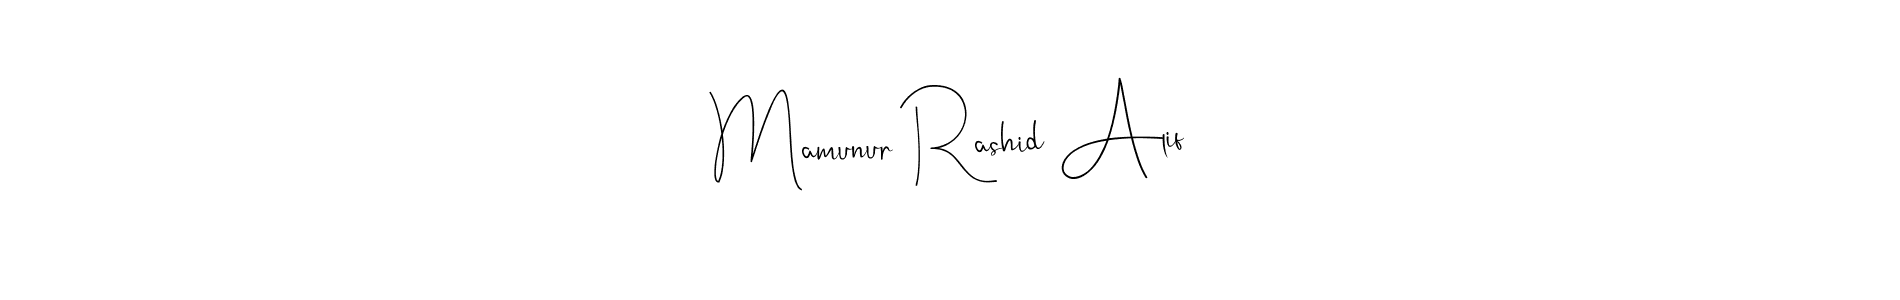 Mamunur Rashid Alif